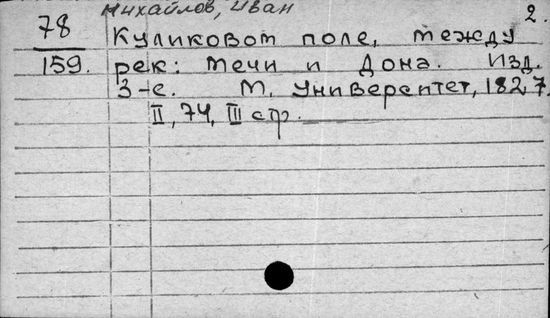 Михайлов, Иван
2.
78
Куликовом поле, между
159. рек: мечи и Дона. Изд.
3-е. М. Университет, 1827.
II, 74, III стр.